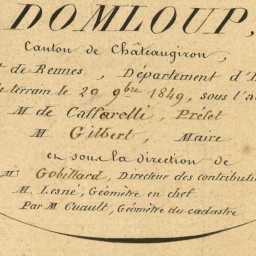 DOMLOUP,
Canton de Châteaugiron,
t de Rennes, Département d'I
e terrain le 20 9bre 1849, sous l'a
M de Caffarelli, Préfet
M Gilbert, Maire
et sous la direction de
Mr Gobillard, Directeur des contributi
M. Lesné, Géomètre en chef
Par M Cuault, Géomètre du cadastre